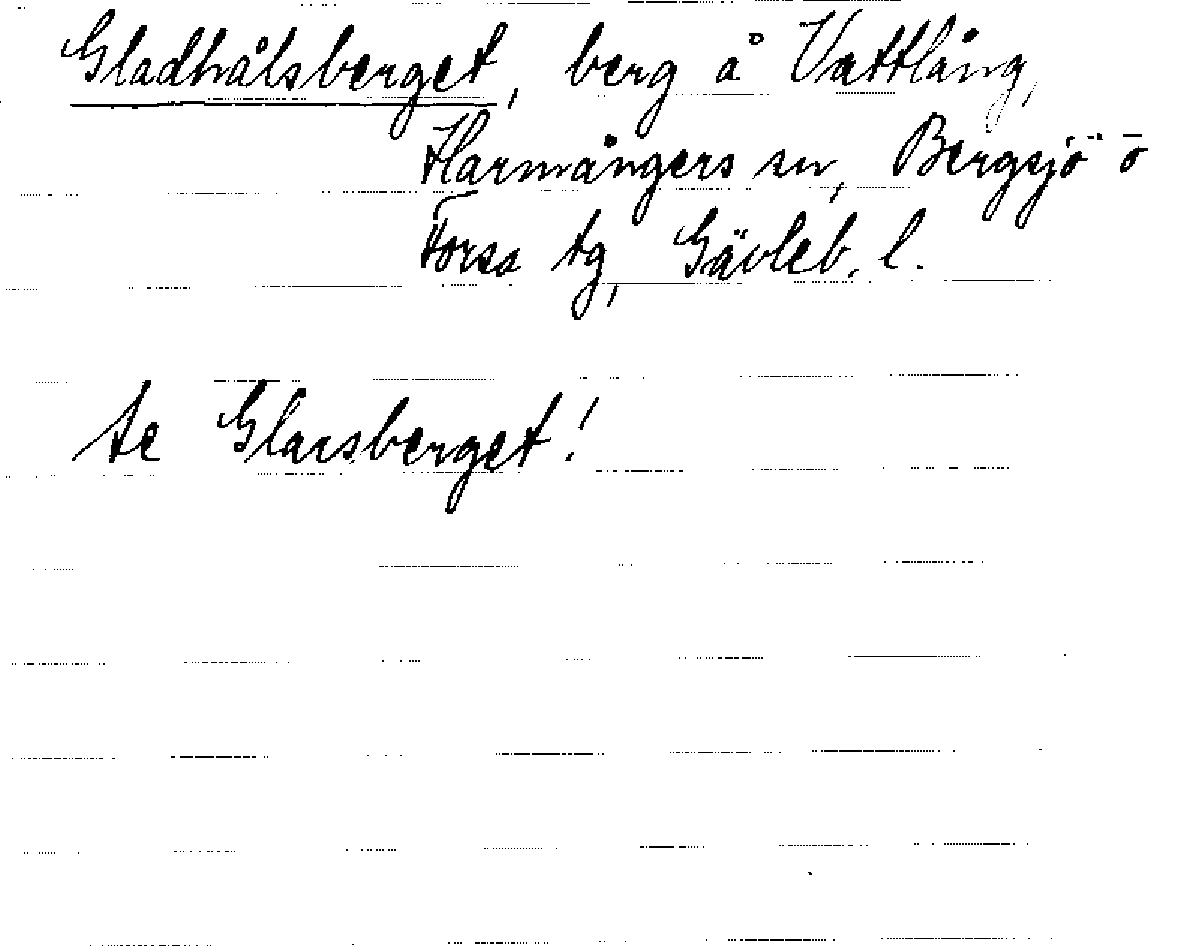 Gladhålsberget, berg å Vattlång,
Harmångers sn, Bergsjö o
Forsa tg, Gävleb. l.
se Glarsberget!